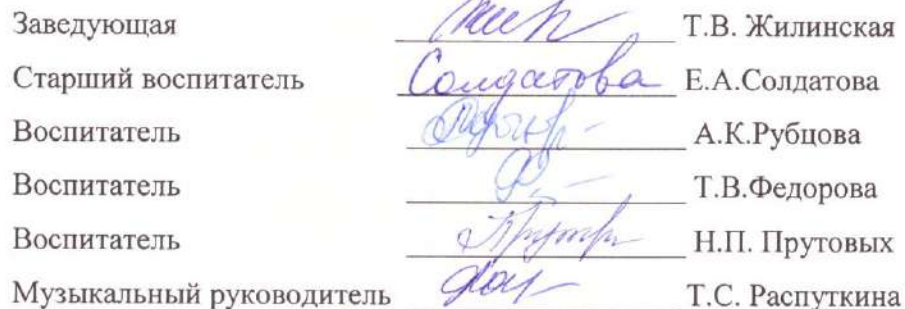 Заведующая Жил Т.В. Жилинская
Старший воспитатель Солдатова Е.А.Солдатова
Воспитатель А.К.Рубцова
Воспитатель Т.В.Федорова
Воспитатель Н.П. Прутовых
Музыкальный руководитель Т.С. Распуткина